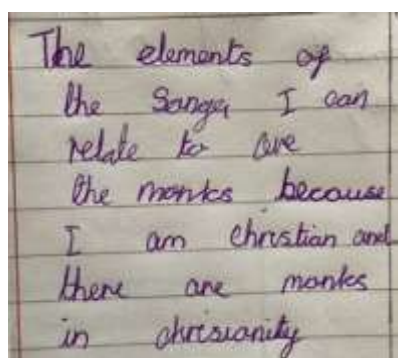 The elements of
the Sanga I can
relate to are
the monks because
I am christian and
there are monks
in chrisianity